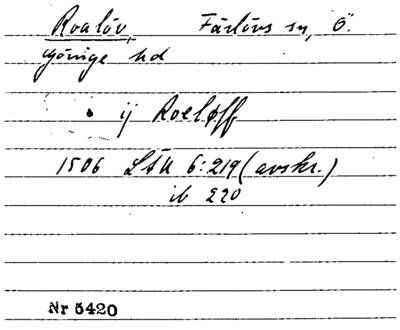 Roalöv, Färlövs sn, Ö.
Gönige hd
ij Roeløff
1506 LÄU 6:219 (avskr.)
ib 220
Nr 5420